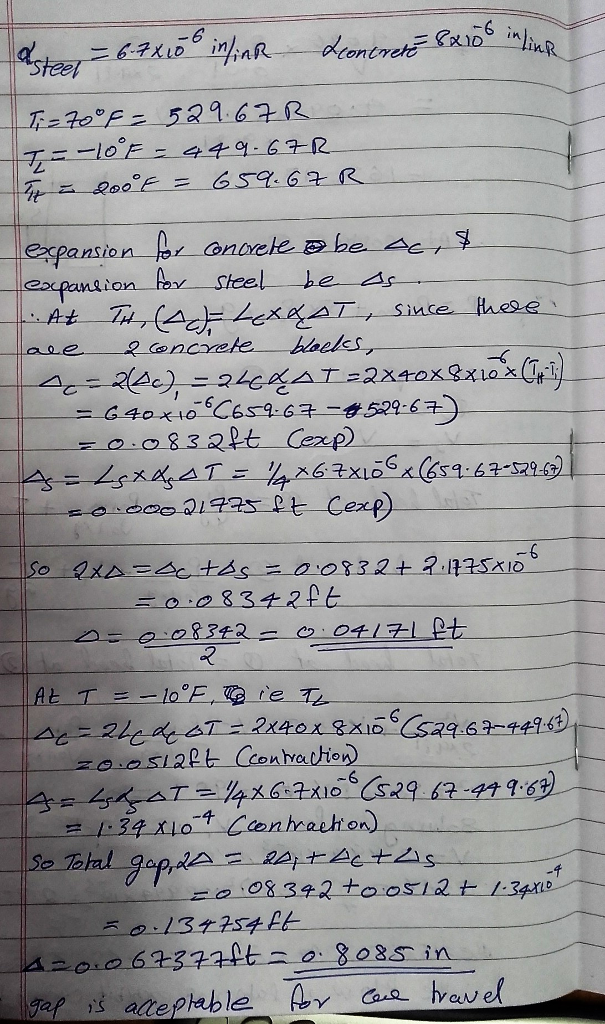 α steel = 6.7x10^-6 in/inR α concrete = 8x10^-6 in/inR
Ti = 70°F = 529.67R
TL = -10°F = 449.67R
TH = 200°F = 659.67 R
expansion for concrete be Δc, &
expansion for steel be Δs.
∴ At TH, (Δc)1 = Lc x αc ΔT, since there
are 2 concrete blocks,
Δc = 2(Δc)1 = 2Lc αc ΔT = 2x40x8x10^-6 x (TH-Ti)
= 640x10^-6 (659.67 - 529.67)
= 0.0832ft (exp)
Δs = Ls x αs ΔT = 1/4 x 6.7x10^-6 x (659.67-529.67)
= 0.00021775 ft (exp)
So 2xΔ = Δc + Δs = 0.0832 + 2.1775x10^-6
= 0.08342ft
Δ = 0.08342/2 = 0.04171 ft
At T = -10°F, ie TL
Δc = 2Lc αc ΔT = 2x40x8x10^-6 (529.67-449.67)
= 0.0512ft (contraction)
Δs = Ls αs ΔT = 1/4 x 6.7x10^-6 (529.67-449.67)
= 1.34 x10^-4 (contraction)
So Total gap, 2Δ = 2Δ1 + Δc + Δs
= 0.08342 + 0.0512 + 1.34x10^-4
= 0.134754ft
Δ = 0.067377ft = 0.8085 in
gap is acceptable for travel